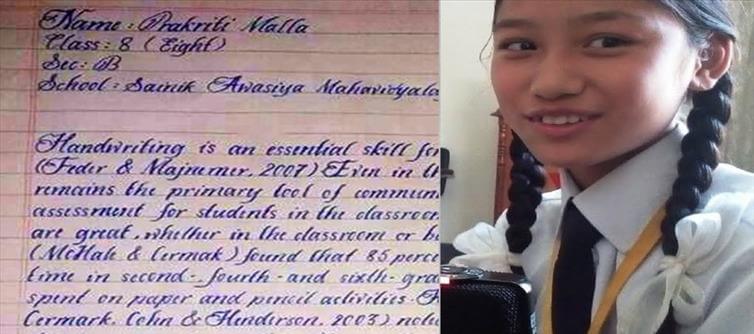 Name : Prakriti Malla
Class : 8 ( Eight)
Sec : B
School : Sainik Awasiya Mahavidyalaya
Handwriting is an essential skill for
(Feder & Majnemer, 2007) Even in th
remains the primary tool of commun
assessment for students in the classroom
are great, whether in the classroom or b
(McHale & Cermak ) found that 85 perce
time in second-, fourth- and sixth- gra
spent on paper and pencil activities.
Cermark, Cohn & Henderson, 2003)